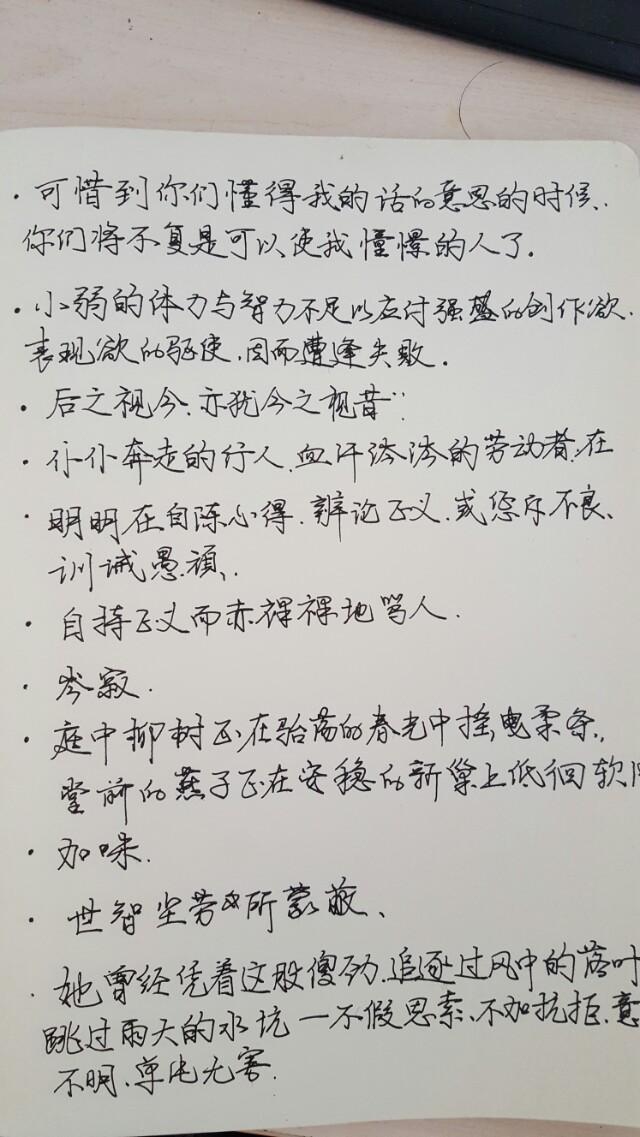 · 可惜到你们懂得我的话的意思的时候,
你们将不复是可以使我憧憬的人了.
· 小弱的体力与智力不足以应付强盛的创作欲.
表现欲的驱使,因而遭逢失败.
· 后之视今.亦犹今之视昔
· 仆仆奔走的行人.血汗涔涔的劳动者.在
· 明明在自陈心得.辩论正义.或惩斥不良、
训诫愚顽、
· 自持正义而赤裸裸地骂人.
· 岑寂.
· 庭中柳树正在骀荡的春光中摇曳柔条,
堂前的燕子正在安稳的新巢上低徊软
· 加味.
· 世智尘劳所蒙蔽、
· 她曾经凭着这股傻劲.追逐过风中的落叶
跳过雨天的水坑—不假思索、不加抗拒.意
不明、单纯无害.